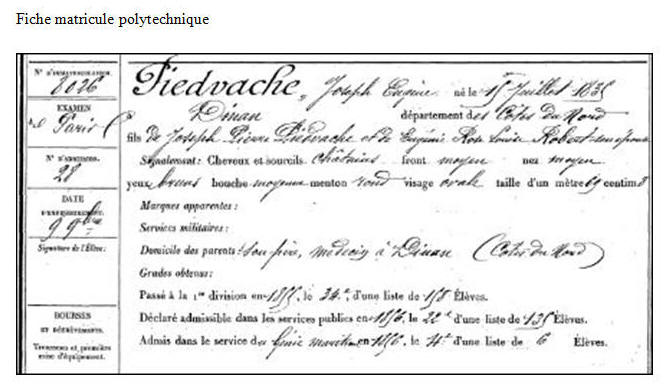 Fiche matricule polytechnique
N° D'IMMATRICULATION.
8026
EXAMEN
de Paris
N° D'ADMISSION.
28
DATE
D'ENREGISTREMENT.
9 9bre
Signature de l'Élève:
BOURSES
ET DÉGRÈVEMENTS.
Trousseau et première
mise d'équipement.
Piedvache, Joseph Eugène né le 15 Juillet 1835
Dinan département des Cotes du Nord
fils de Joseph Pierre Piedvache et de Eugénie Rose Louise Robert son épouse
Signalement: Cheveux et sourcils châtains front moyen nez moyen
yeux bruns bouche moyenne menton rond visage ovale taille d'un mètre 69 centim
Marques apparentes:
Services militaires:
Domicile des parents: Son père, médecin à Dinan (Cotes du Nord)
Grades obtenus:
Passé à la 1re division en 1855, le 34e d'une liste de 158 Élèves.
Déclaré admissible dans les services publics en 1856, le 22e d'une liste de 135 Élèves.
Admis dans le service du Génie maritime en 1856, le 4e d'une liste de 6 Élèves.